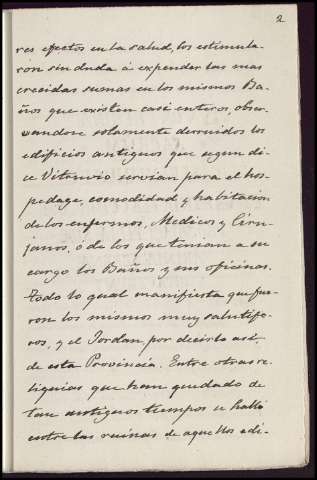 2
res efectos en la salud, los estimula-
ron sin duda á expender las mas
crecidas sumas en los mismos Ba-
ños que existen casi enteros, obser-
vandose solamente derruidos los
edificios antiguos que segun di-
ce Vitruvio servian para el hos-
pedage, comodidad y habitacion
de los enfermos, Medicos y Ciru-
janos, ó de los que tenian a su
cargo los Baños y sus oficinas.
Todo lo qual manifiesta que fue-
ron los mismos muy salutife-
ros, y el Jordan, por decirlo asi,
de esta Provincia. Entre otras re-
liquias que han quedado de
tan antiguos tiempos se halló
entre las ruinas de aquellos edi-